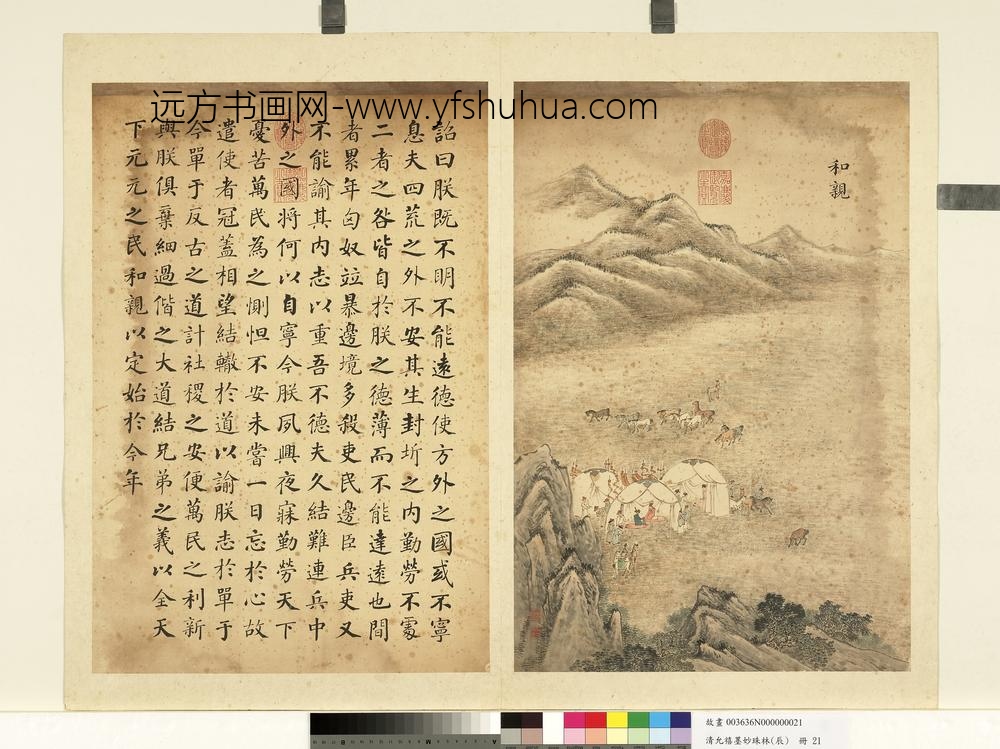 远方书画网-www.yfshuhua.com
和親
詔曰朕既不明不能遠德使方外之國或不寧
息夫四荒之外不安其生封圻之内勤勞不處
二者之咎皆自於朕之德薄而不能達遠也間
者累年匈奴竝暴邊境多殺吏民邊臣兵吏又
不能諭其内志以重吾不德夫久結難連兵中
外之國將何以自寧今朕夙興夜寐勤勞天下
憂苦萬民為之惻怛不安未嘗一日忘於心故
遣使者冠蓋相望結轍於道以諭朕志於單于
今單于反古之道計社稷之安便萬民之利新
與朕俱棄細過偕之大道結兄弟之義以全天
下元元之民和親以定始於今年
故畫 003636N000000021
清允禧墨妙珠林(辰) 冊 21